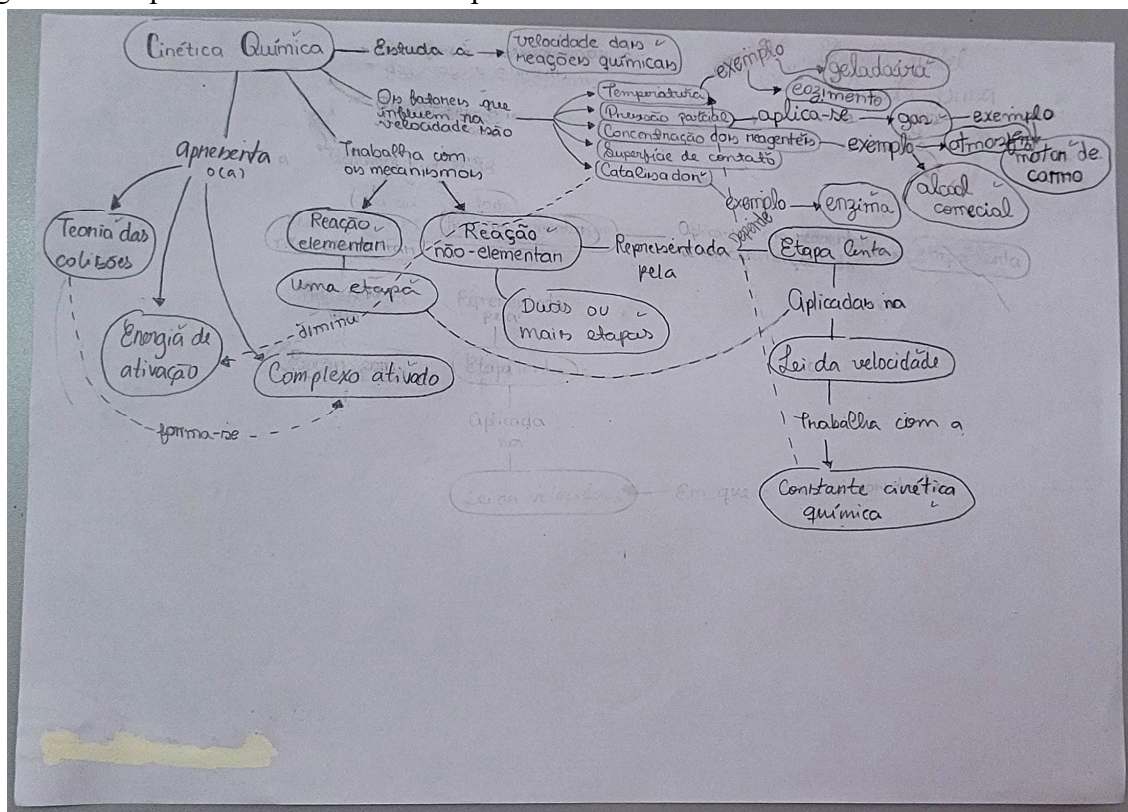 Cinética Química
Estuda a
velocidade das
reações químicas
Os fatores que
influem na
velocidade são
Temperatura
Pressão parcial
Concentração dos reagentes
Superfície de contato
Catalisador
exemplo
geladaira
cozimento
aplica-se
gas
exemplo
motor de
carro
exemplo
alcool
comecial
exemplo
enzima
apresenta
o(a)
Teoria das
colisões
Energia de
ativação
Complexo ativado
forma-se
Trabalha com
os mecanismos
Reação
elementar
uma etapa
Reação
não-elementar
Duas ou
mais etapas
diminui
Representada
pela
Etapa lenta
Aplicadas na
Lei da velocidade
Trabalha com a
Constante cinética
química
depende
Aplicada
na
Lei da velocidade
Em que